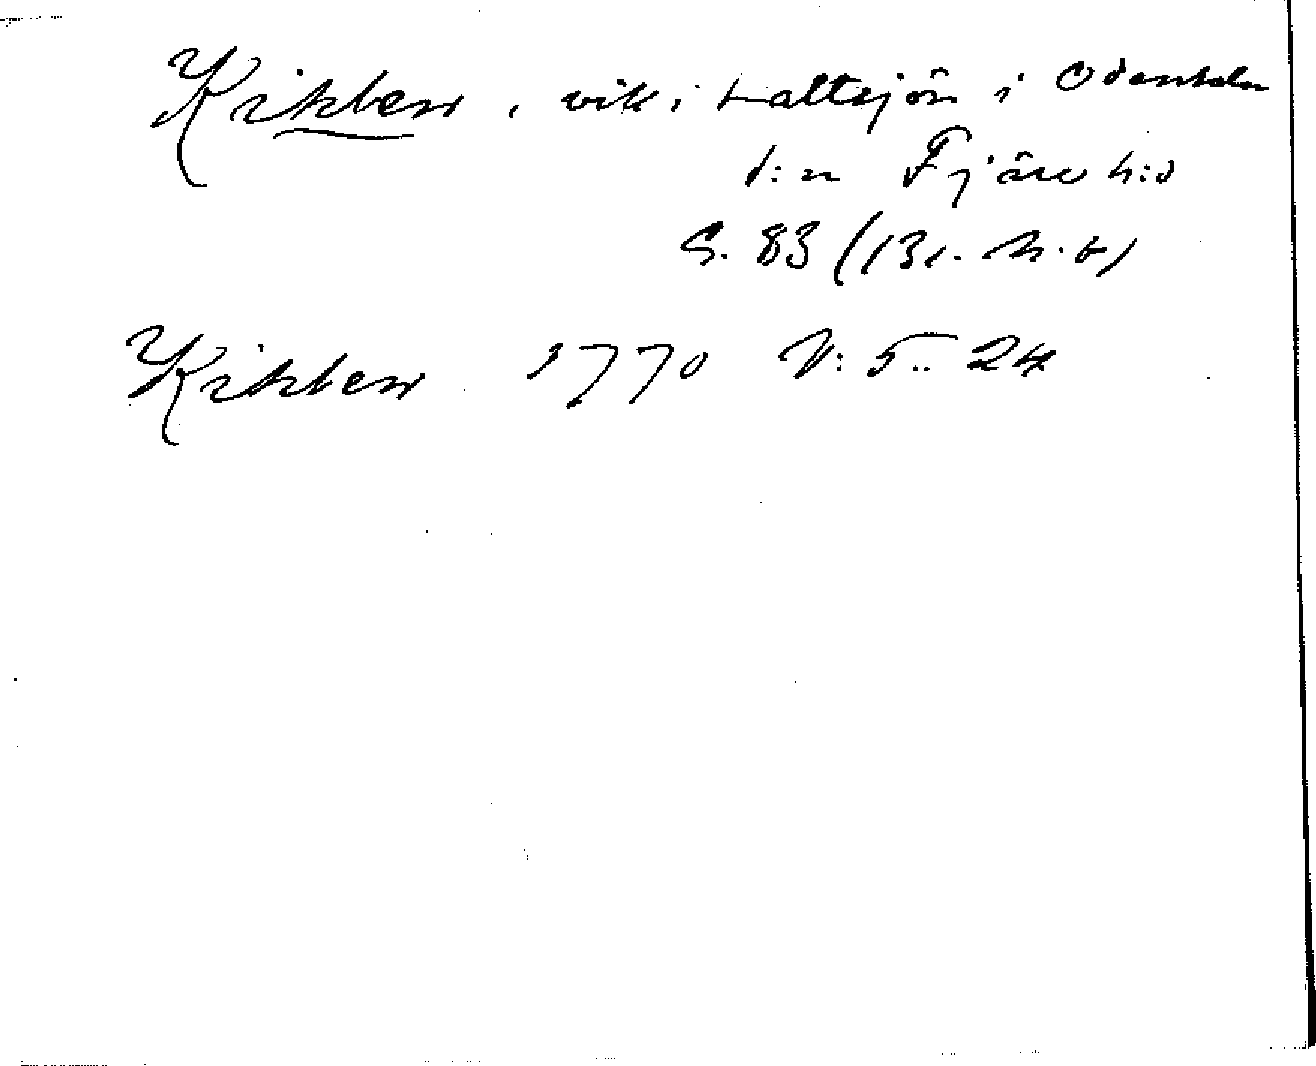 Kikben, vik i Saltsjön i Odensala
s:n Fjäre h:d
S. 83 (131. N. t)
Kikben 1770 V: 5.. 24